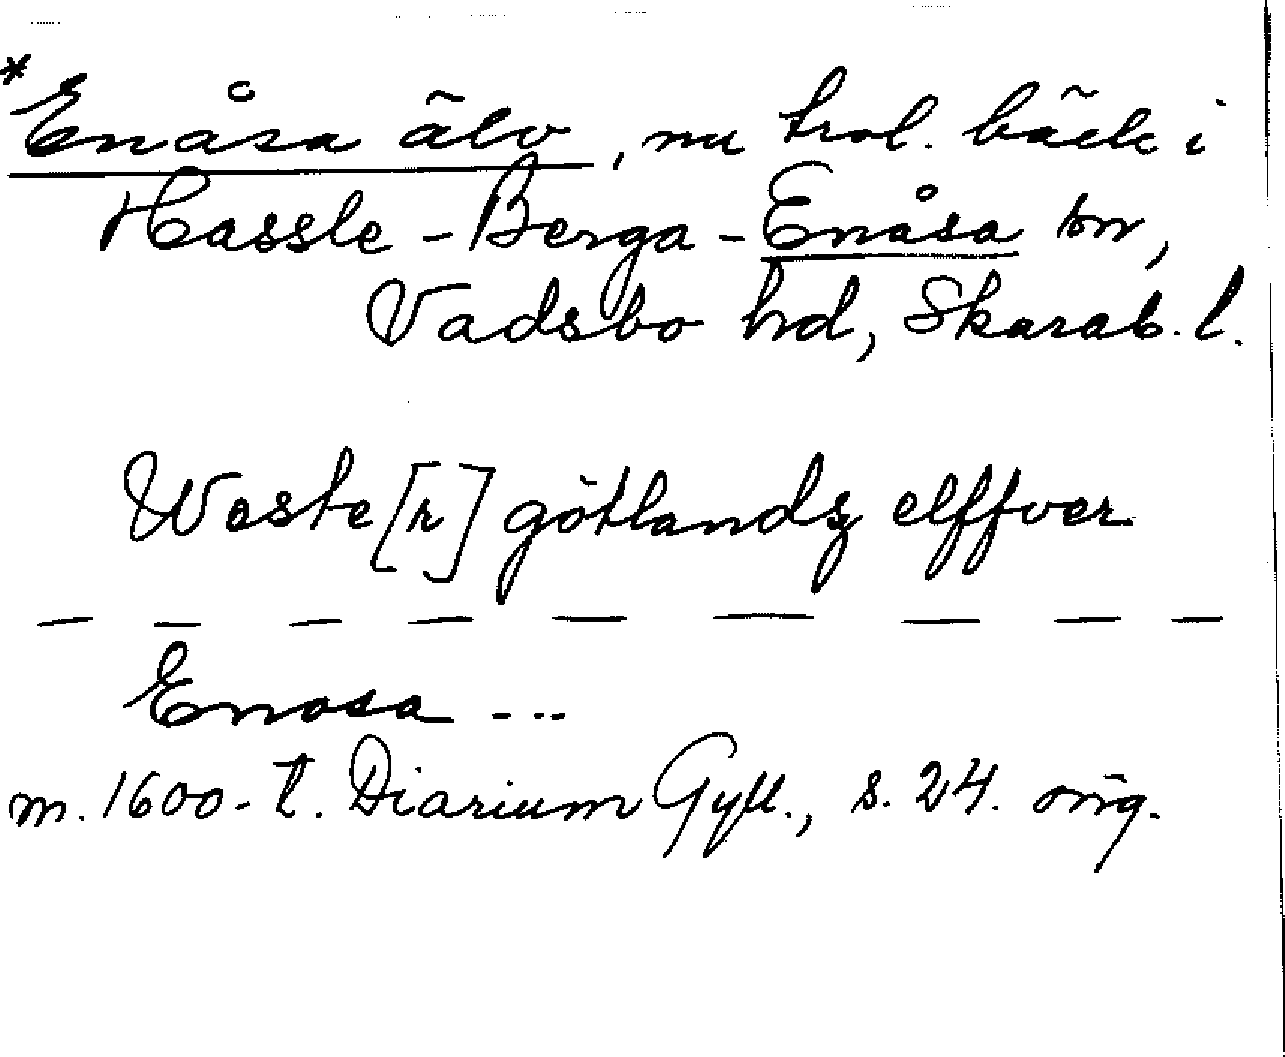 *Enåsa älv, nu trol. bäck i
Hassle-Berga-Enåsa sn,
Vadsbo hd, Skarab. l.
Weste[r] götlandz elffver
— — — — — — — — —
Enosa ...
m. 1600-t. Diarium Gyll., s. 24. orig.